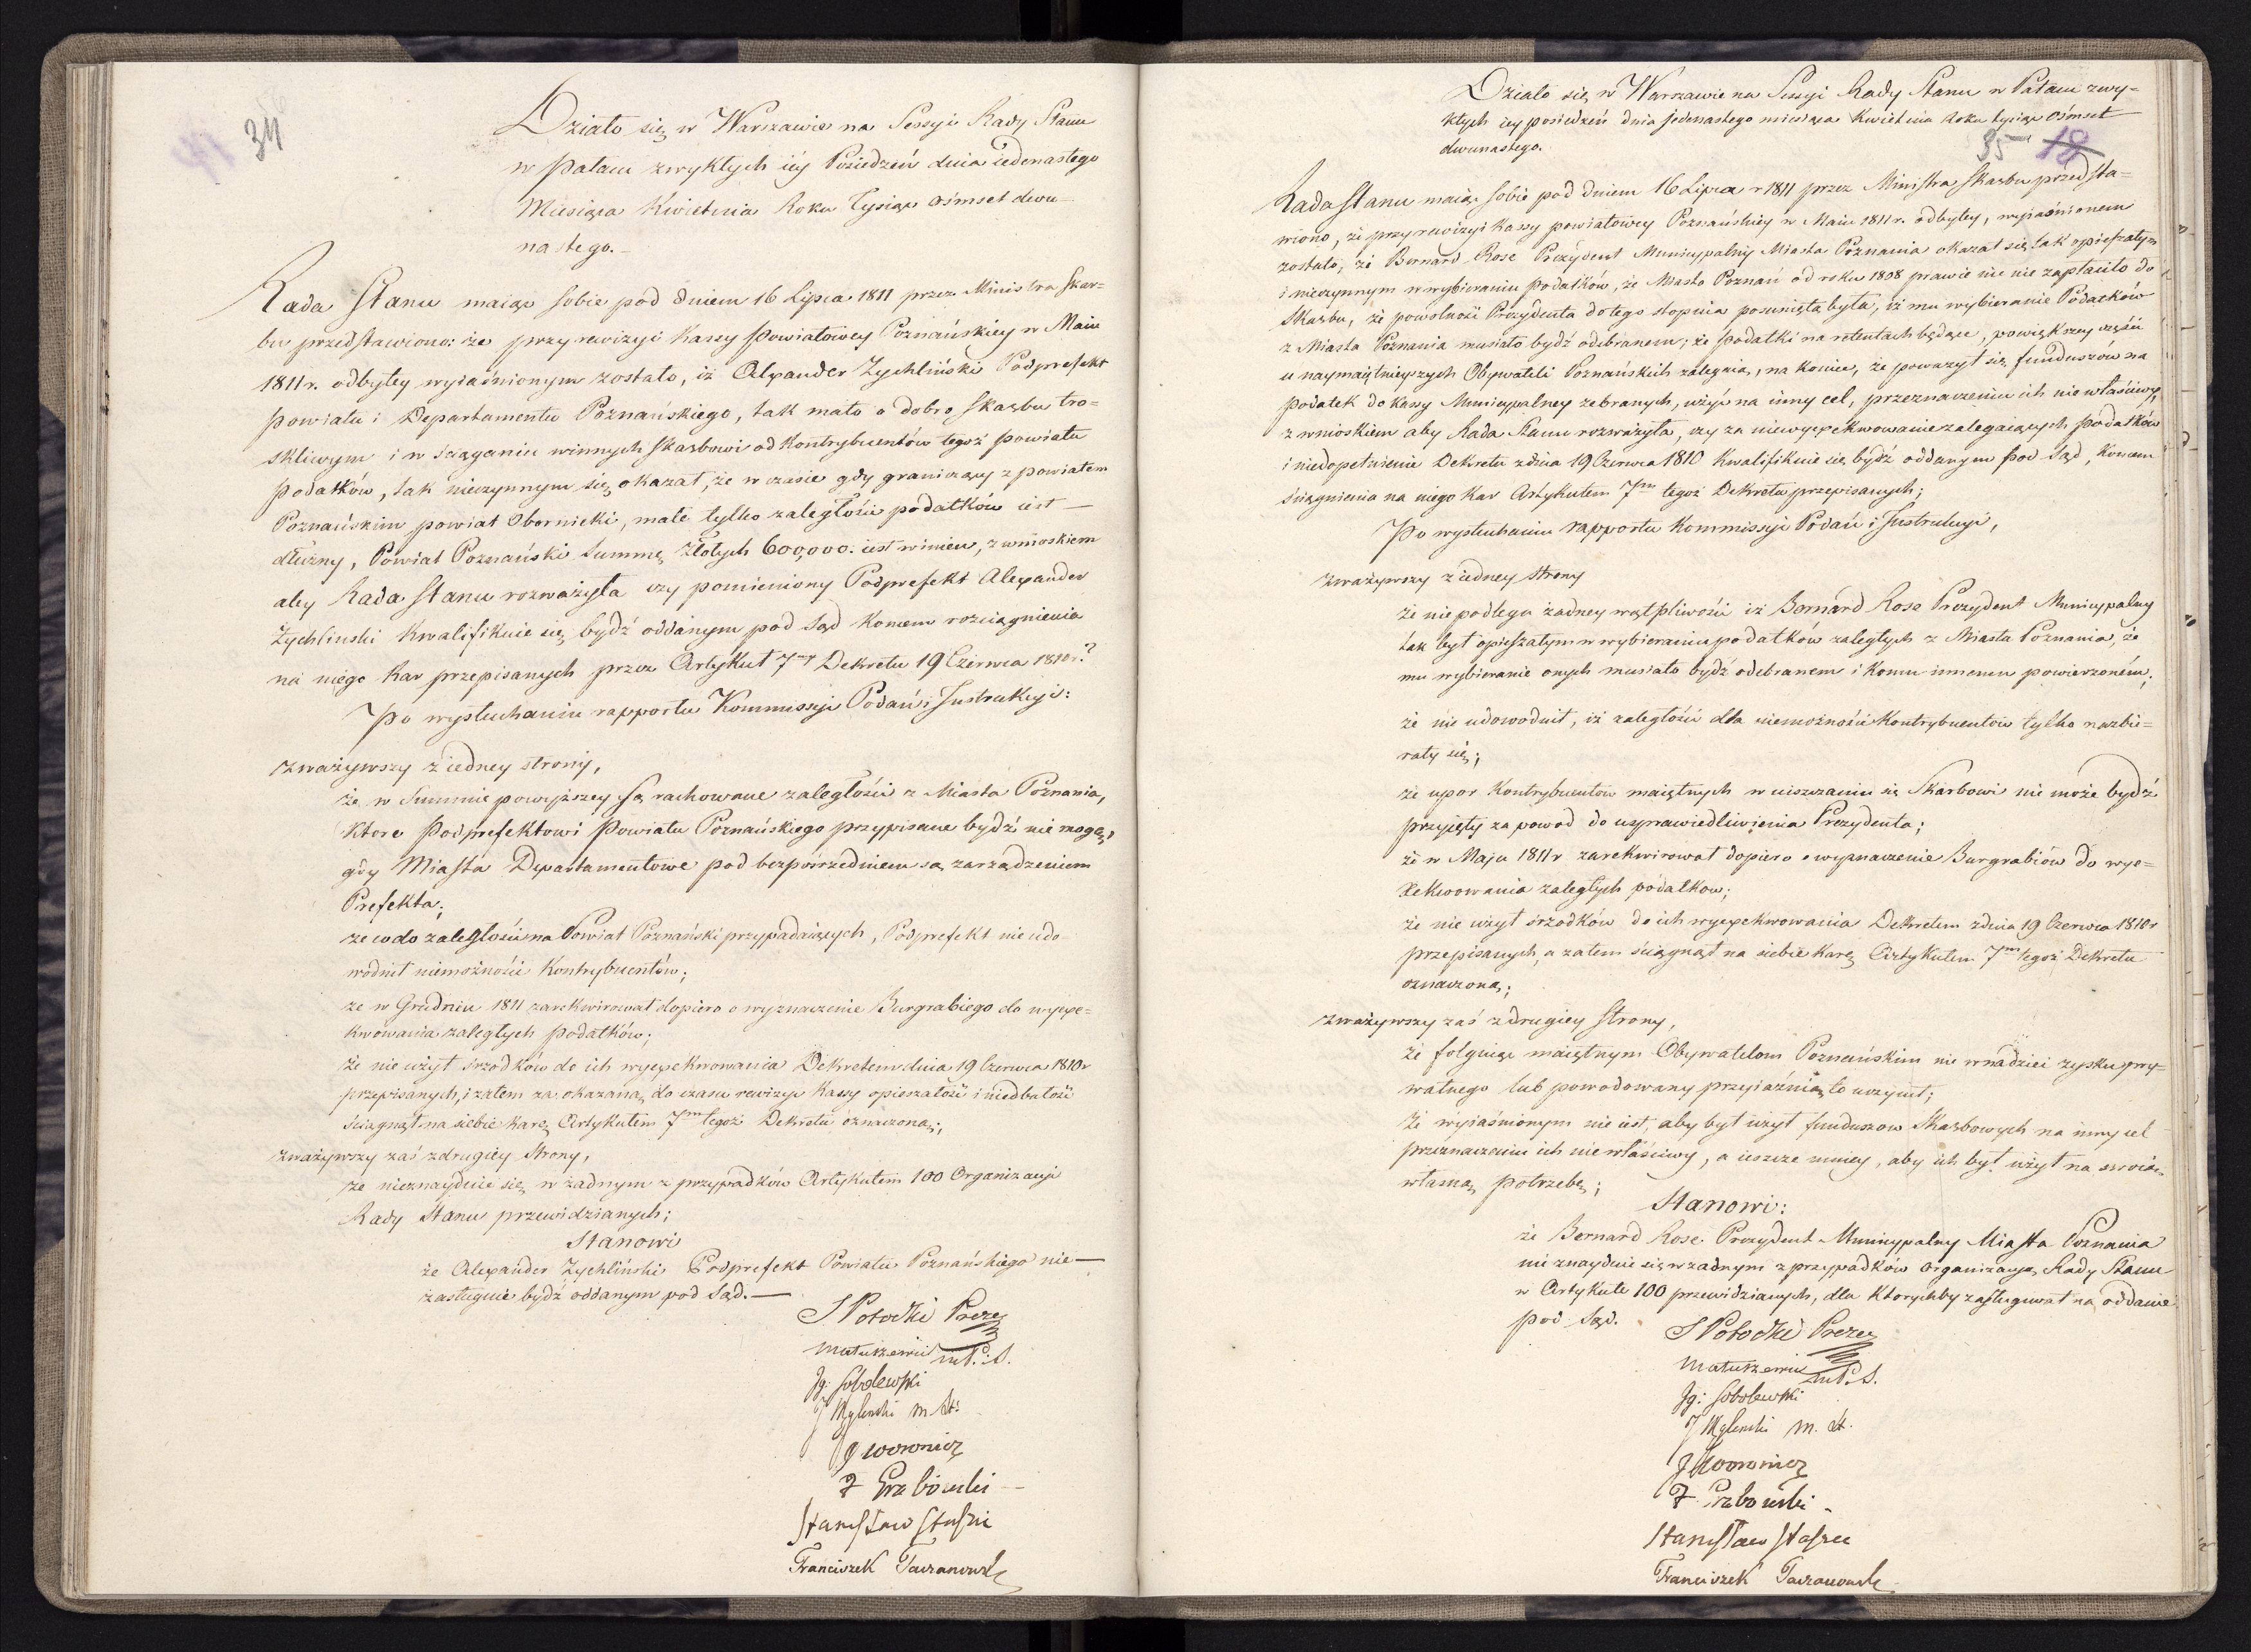 34
Działo się w Warszawie na Sessyi Rady Stanu
w Pałacu zwykłych iéy Posiedzeń dnia iedenastego
Miesiąca Kwietnia Roku Tysiąc Ośmset dwu=
nastego.
Rada Stanu maiąc sobie pod dniem 16 Lipca 1811 przez Ministra Skar=
bu przedstawiono: że przy rewizyi Kassy Powiatowey Poznańskiey w Maiu
1811 r. odbytey wyiaśnionym zostało, iż Alexander Zychliński Podprefekt
Powiatu i Departamentu Poznańskiego, tak mało o dobro Skarbu tro=
skliwym i w ściąganiu winnych Skarbowi od Kontrybuentów tegoż Powiatu
Podatków, tak nieczynnym się okazał, że w czasie gdy graniczący z powiatem
Poznańskim powiat Obornicki, małe tylko zaległości podatków iest
dłużny, Powiat Poznański Summę Złotych 600,000. iest winien, z wnioskiem
aby Rada Stanu rozważyła czy pomieniony Podprefekt Alexander
Zychlinski Kwalifikuie się bydź oddanym pod Sąd Koncem rozciągnienia
na niego Kar przepisanych przez Artykuł 7my Dekretu 19 Czerwca 1810 r.?
Po wysłuchaniu rapportu Kommissyi Podań i Instrukcyi:
zważywszy z iedney strony,
że w Summie powyższey są rachowane zaległości z Miasta Poznania,
Ktore Podprefektowi Powiatu Poznańskiego przypisane bydź nie mogą,
gdy Miasta Departamentowe pod bezpośrzedniem są zarządzeniem
Prefekta;
że co do zaległości na Powiat Poznański przypadaiących, Podprefekt nie udo=
wodnił niemożności Kontrybuentów;
że w Grudniu 1811 zarekwirował dopiero o wyznaczenie Burgrabiego do wyexe=
kwowania zaległych podatków;
że nie użył srzodków do ich wyexekwowania Dekretem dnia 19 Czerwca 1810 r
przepisanych, i zatem za okazaną do czasu rewizyi Kassy opieszałość i niedbałość
ściągnął na siebie karę Artykułem 7m tegoż Dekretu oznaczoną;
zważywszy zaś z drugiey Strony,
że nieznayduie się w żadnym z przypadków Artykułem 100 Organizacyi
Rady Stanu przewidzianych;
Stanowi
że Alexander Zychliński Podprefekt Powiatu Poznańskiego nie
zasługuie bydź oddanym pod Sąd.
S Potocki Prezes
Matuszewic
Ig: Sobolewski
J Woronicz
Z Grabowski
Stanisław Staszic
Franciszek
Działo się w Warszawie na Sessyi Rady Stanu w Pałacu zwy=
kłych iey posiedzeń dnia jedenastego miesiąca Kwietnia Roku tysiąc Ośmset
dwunastego.
35 18
Rada Stanu maiąc sobie pod dniem 16 Lipca r 1811 przez Ministra Skarbu przedsta=
wiono, że przy rewizyi Kassy powiatowey Poznańskiey w Maiu 1811 r. odbytey, wyjaśnionem
zostało, że Bernard Rose Prezydent Municypalny Miasta Poznania okazał się tak opieszałym
i nieczynnym w wybieraniu podatków, że Miasto Poznań od roku 1808 prawie nic nie zapłaciło do
Skarbu, że powolność Prezydenta do tego stopnia posuniętą była, iż mu wybieranie Podatków
z Miasta Poznania musiało bydź odebranem; że podatki na retentach będące, powiększey części
u naymaiętnieyszych Obywateli Poznańskich zalegaią, na koniec, że poważył się funduszów na
podatek do kassy Municypalney zebranych, użyć na inny cel, przeznaczeniu ich niewłaściwy,
z wnioskiem aby Rada Stanu rozważyła, czy za niewyexekwowanie zalegaiących podatków
i niedopełnienie Dekretu z dnia 19 Czerwca 1810 Kwalifikuie się bydź oddanym pod Sąd, Koncem
ściągnienia na niego Kar Artykułem 7m tegoż Dekretu przepisanych;
Po wysłuchaniu rapportu Kommissyi Podań i Instrukcyi,
zważywszy z iedney strony
że nie podlega żadney wątpliwości iż Bernard Rose Prezydent Municypalny
tak był opieszałym w wybieraniu podatków zaległych z Miasta Poznania, że
mu wybieranie onych musiało bydź odebranem i Komu innemu powierzoném;
że nie udowodnił, iż zaległości dla niemożności Kontrybuentów tylko nazbie=
rały się;
że upor Kontrybuentów maiętnych w uiszczaniu się Skarbowi nie może bydź
przyięty za powod do usprawiedliwienia Prezydenta;
że w Maju 1811 r zarekwirował dopiero o wyznaczenie Burgrabiów do wye=
xekwowania zaległych podatkow;
że nie użył srzodków do ich wyexekwowania Dekretem z dnia 19 Czerwca 1810 r
przepisanych, a zatem ściągnął na siebie karę Artykułem 7m tegoż Dekretu
oznaczoną;
zważywszy zaś z drugiey Strony,
że folguiąc maiętnym Obywatelom Poznańskim nie w nadziei zysku pry=
watnego lub powodowany przyiaźnią to uczynił;
że wyiaśnionym nie iest, aby był użył funduszow Skarbowych na inny cel
przeznaczeniu ich niewłaściwy, a ieszcze mniey, aby ich był użył na swoią
własną potrzebę;
Stanowi:
że Bernard Rose Prezydent Municypalny Miasta Poznania
nie znayduie się w żadnym z przypadków Organizacyą Rady Stanu
w Artykule 100 przewidzianych, dla Ktorychby zasługiwał na oddanie
pod Sąd.
S Potocki Prezes
Matuszewic
Ig: Sobolewski
J Woronicz
Z Grabowski
Stanisław Staszic
Franciszek